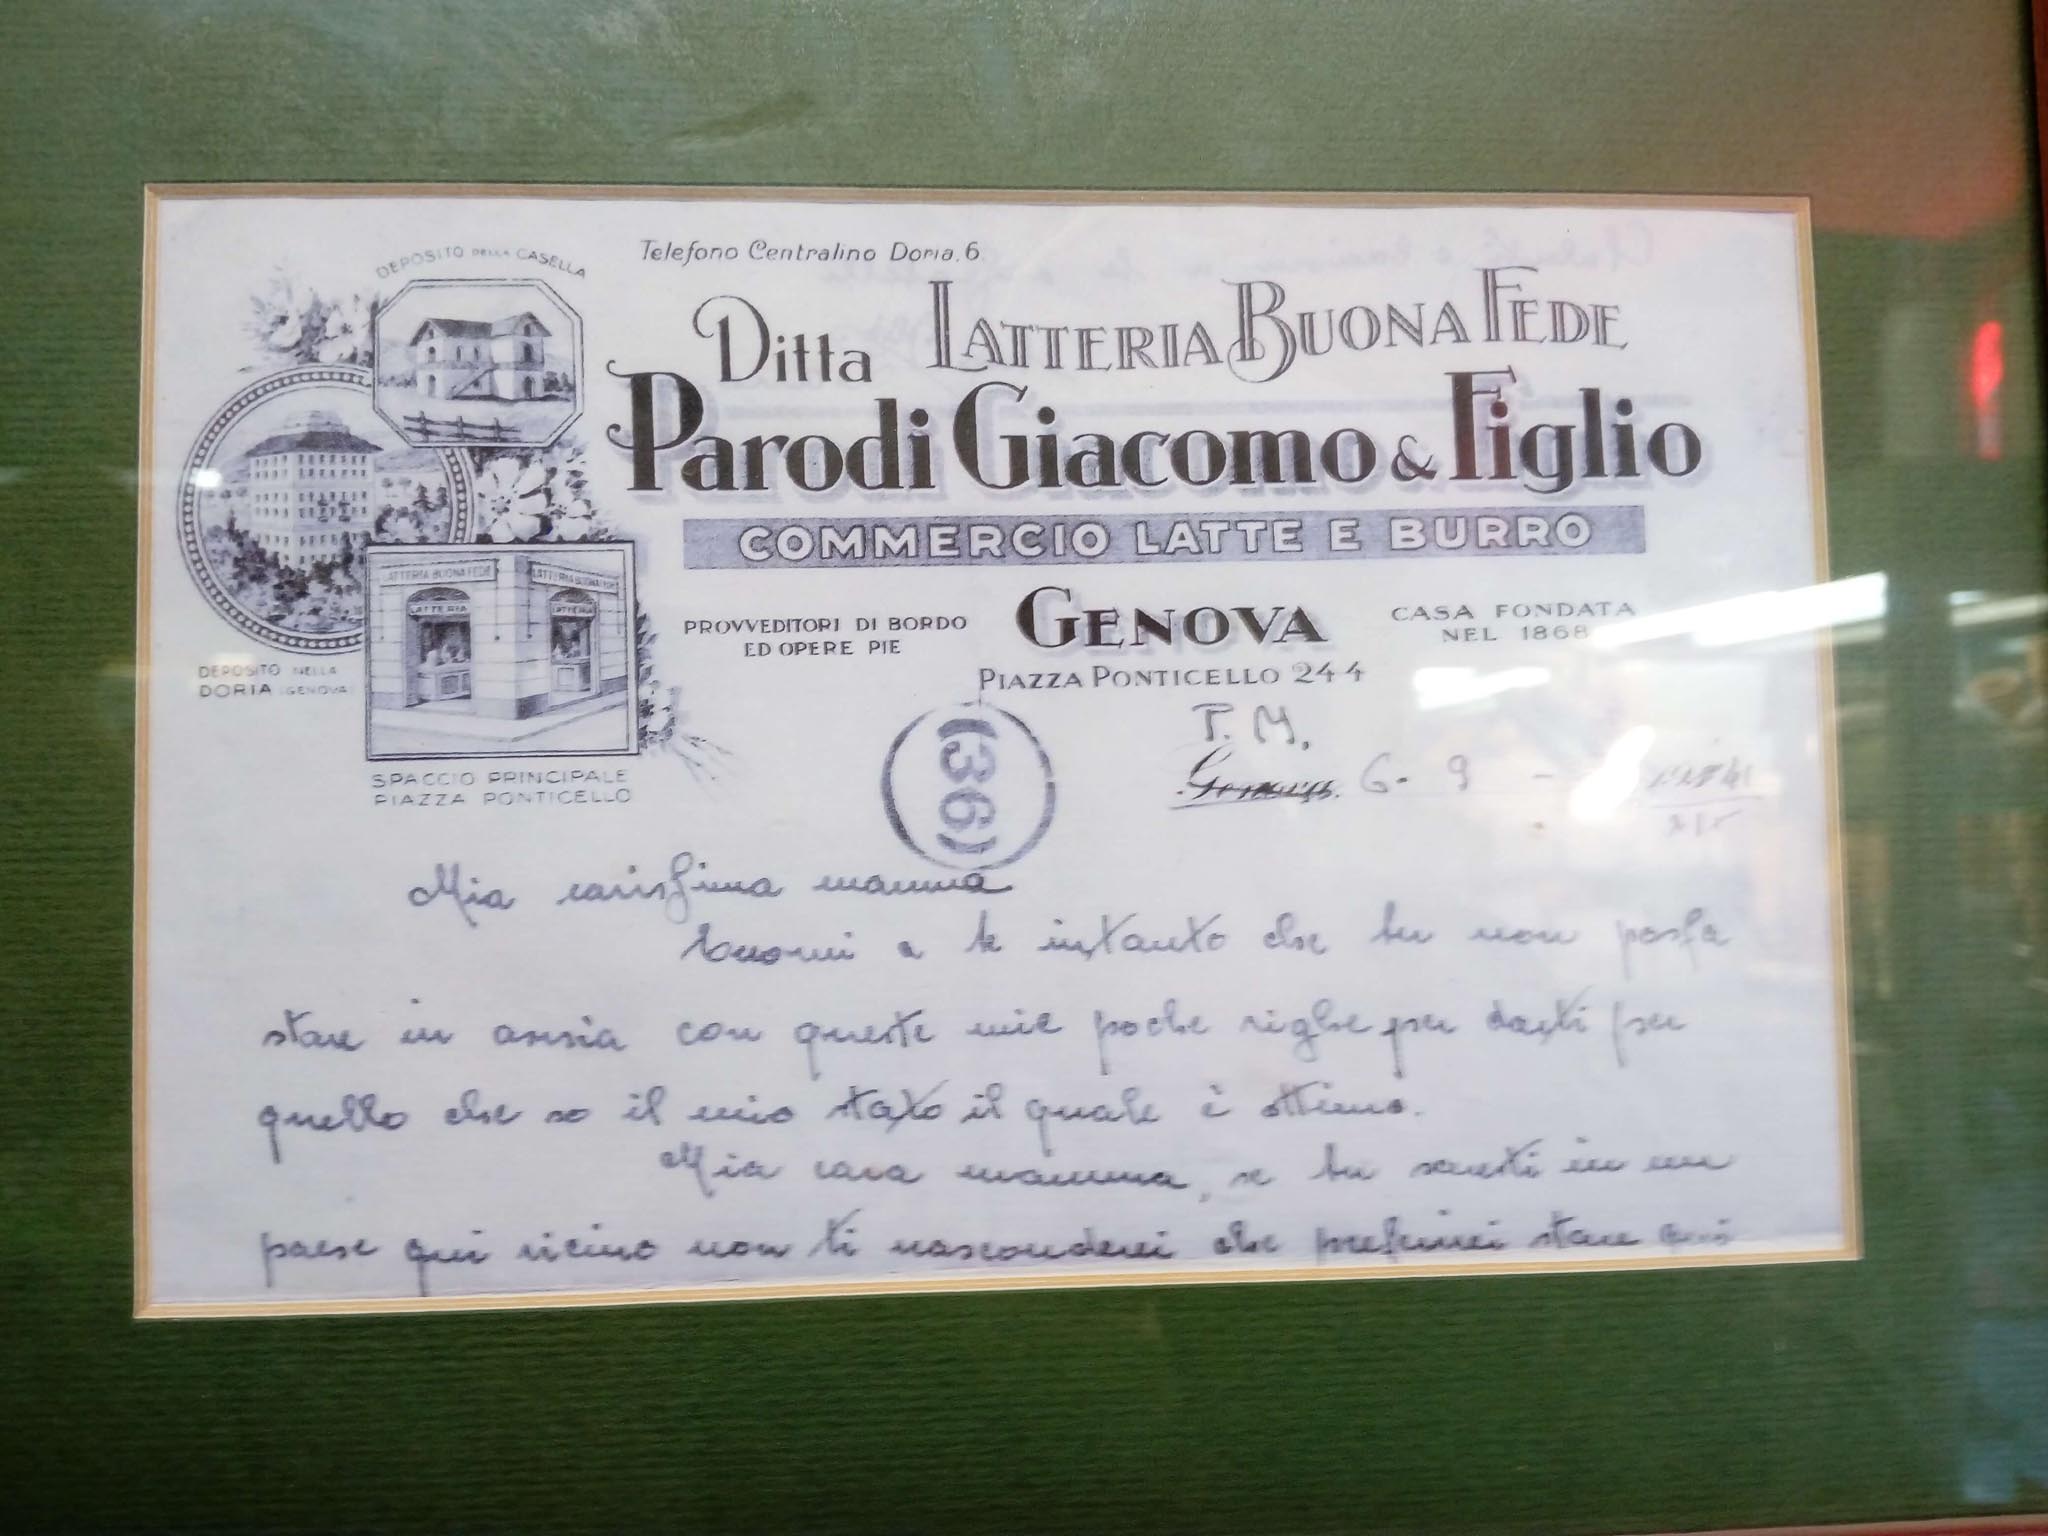 Telefono Centralino Doria.6
DEPOSITO DELLA CASELLA
Ditta LATTERIA BUONA FEDE
Parodi Giacomo & Figlio
COMMERCIO LATTE E BURRO
PROVVEDITORI DI BORDO
ED OPERE PIE
GENOVA
PIAZZA PONTICELLO 244
CASA FONDATA
NEL 1868
LATTERIA BUONA FEDE
LATTERIA BUONA FEDE
LATTERIA
LATTERIA
DEPOSITO NELLA
DORIA (GENOVA)
SPACCIO PRINCIPALE
PIAZZA PONTICELLO
(36)
P. M.
Genova, 6-9-
Mia carissima mamma
a te intanto che tu non possa
stare in ansia con queste mie poche righe per darti per
quello che so il mio stato il quale è ottimo.
Mia cara mamma, se tu venisti in un
paese qui vicino non ti nasconderei che preferirei stare qui